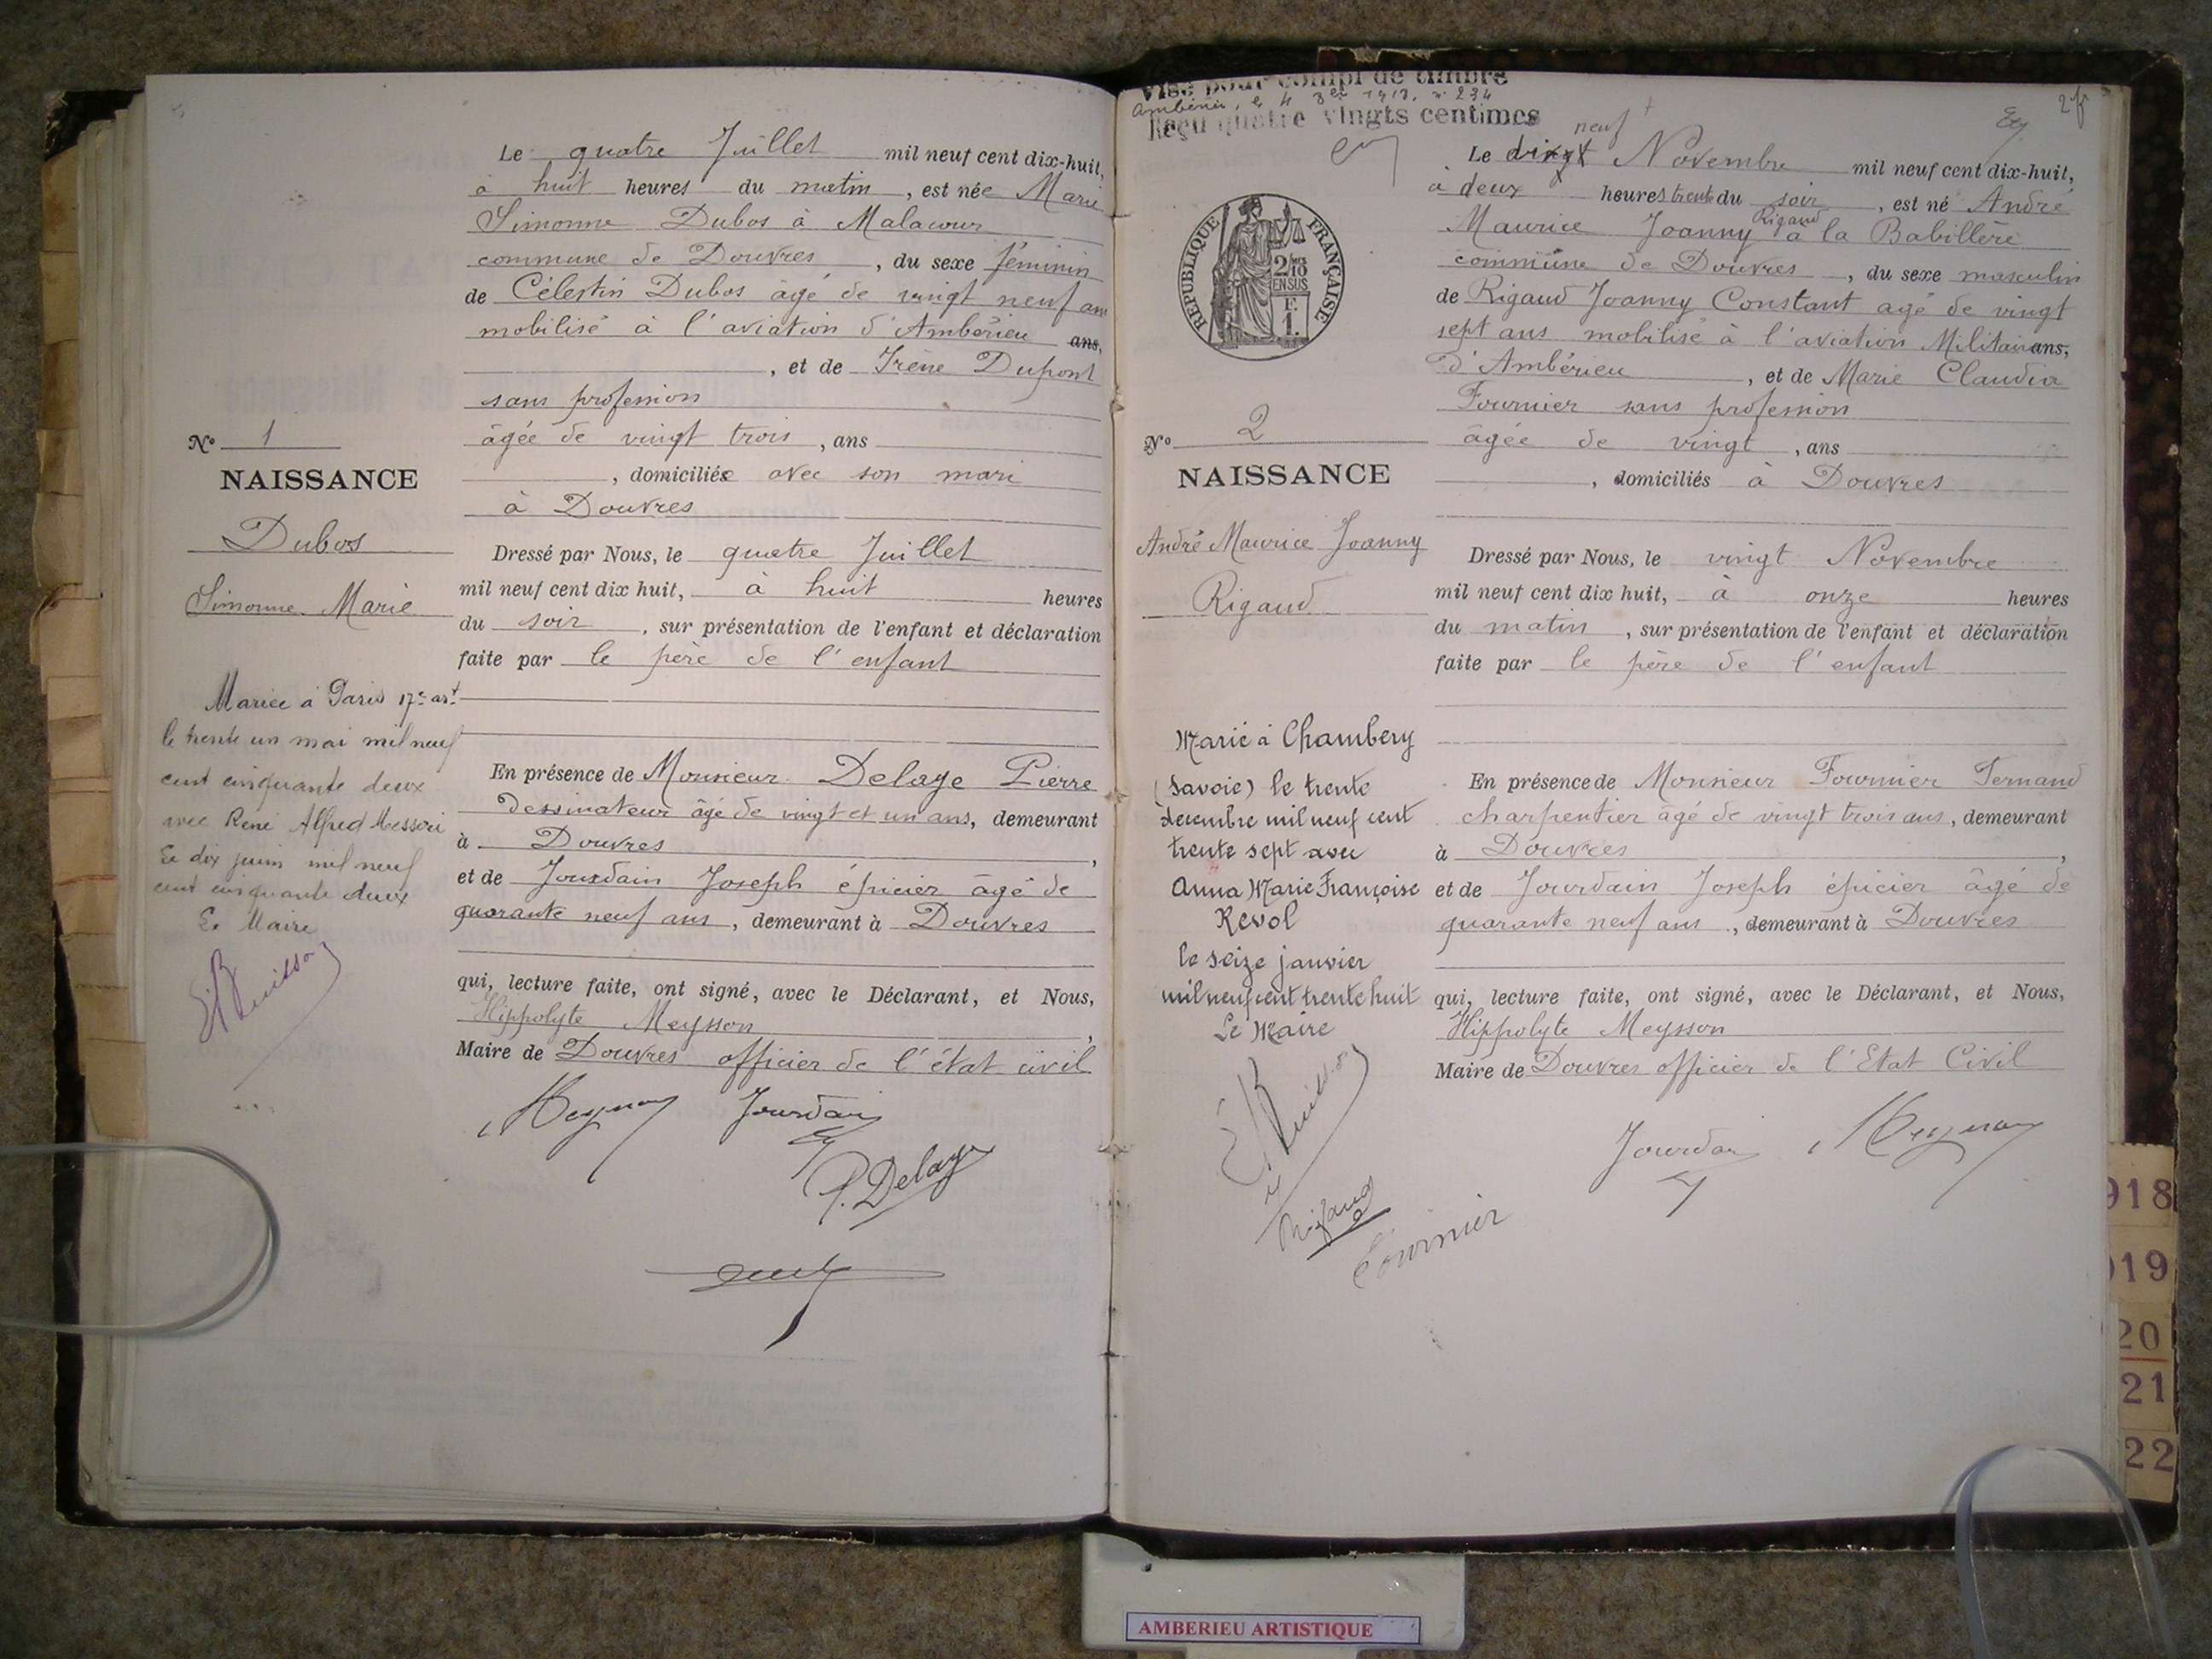 Le quatre Juillet mil neuf cent dix-huit,
à huit heures du matin, est née Marie
Simonne Dubos à Malacour
commune de Douvres, du sexe féminin
de Célestin Dubos âgé de vingt neuf ans
mobilisé à l'aviation d'Ambérieu ans,
, et de Irène Dupont
sans profession
âgée de vingt trois, ans
, domiciliée avec son mari
à Douvres
Nº 1
NAISSANCE
Dubos
Simonne Marie
Dressé par Nous, le quatre Juillet
mil neuf cent dix huit, à huit heures
du soir, sur présentation de l'enfant et déclaration
faite par le père de l'enfant
Mariée à Paris 17e art
le trente un mai mil neuf
cent cinquante deux
avec René Alfred Messori
Le dix juin mil neuf
cent cinquante deux
Le Maire
En présence de Monsieur Delaye Pierre
Dessinateur âgé de vingt et un ans, demeurant
à Douvres,
et de Jourdain Joseph épicier âgé de
quarante neuf ans, demeurant à Douvres
qui, lecture faite, ont signé, avec le Déclarant, et Nous,
Hippolyte Meysson,
Maire de Douvres officier de l'état civil
Meysson Jourdain
P. Delaye
Visé pour compt de timbre
Ambérieu, le 4 1918, n° 234
Reçu quatre vingts centimes
2f
RÉPUBLIQUE FRANÇAISE
2/10
EN SUS
F.
1.
neuf
Le dix Novembre mil neuf cent dix-huit,
à deux heures trente du soir, est né André
Maurice Joanny Rigaud à la Babillère
commune de Douvres, du sexe masculin
de Rigaud Joanny Constant agé de vingt
sept ans mobilisé à l'aviation Militaire ans,
d'Ambérieu, et de Marie Claudia
Fournier sans profession
âgée de vingt, ans
, domiciliés à Douvres
Nº 2
NAISSANCE
André Maurice Joanny
Rigaud
Dressé par Nous, le vingt Novembre
mil neuf cent dix huit, à onze heures
du matin, sur présentation de l'enfant et déclaration
faite par le père de l'enfant
Marié à Chambery
(Savoie) le trente
décembre mil neuf cent
trente sept avec
Anna Marie Françoise
Revol
le seize janvier
mil neuf cent trente huit
Le Maire
En présence de Monsieur Fournier Fernand
charpentier âgé de vingt trois ans, demeurant
à Douvres,
et de Jourdain Joseph épicier âgé de
quarante neuf ans, demeurant à Douvres
qui, lecture faite, ont signé, avec le Déclarant, et Nous,
Hippolyte Meysson
Maire de Douvres officier de l'Etat Civil
Jourdain Meysson
Rigaud
Fournier
918
919
20
21
22
AMBERIEU ARTISTIQUE